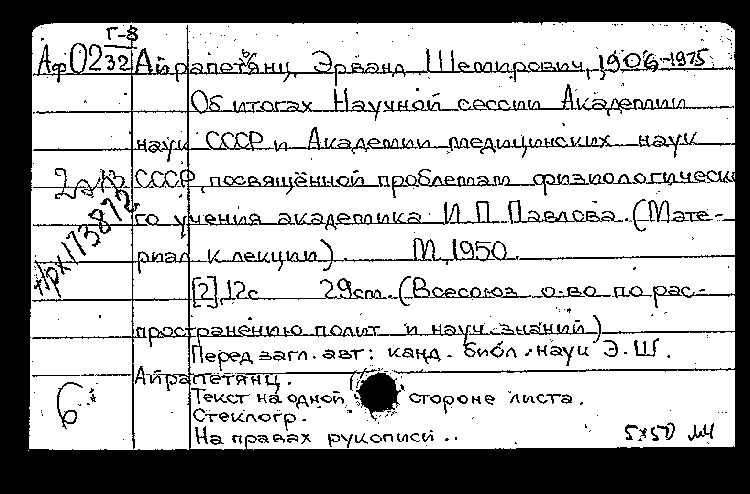 Г-8
Аф02 32 Айрапетьянц, Эрванд Шемирович, 1906-1975
Об итогах Научной сессии Академии
наук СССР и Академии медицинских наук
2экз СССР, посвящённой проблемам физиологическо
го учения академика И.П.Павлова. (Мате-
Арх173872
риал к лекции). М, 1950.
[2], 12с 29см. (Всесоюз о-во по рас-
пространению полит и науч. знаний)
Перед загл. авт: канд. библ. наук Э.Ш.
Айрапетянц.
Текст на одной стороне листа.
Стеклогр.
На правах рукописи..
б.
5x50 мч